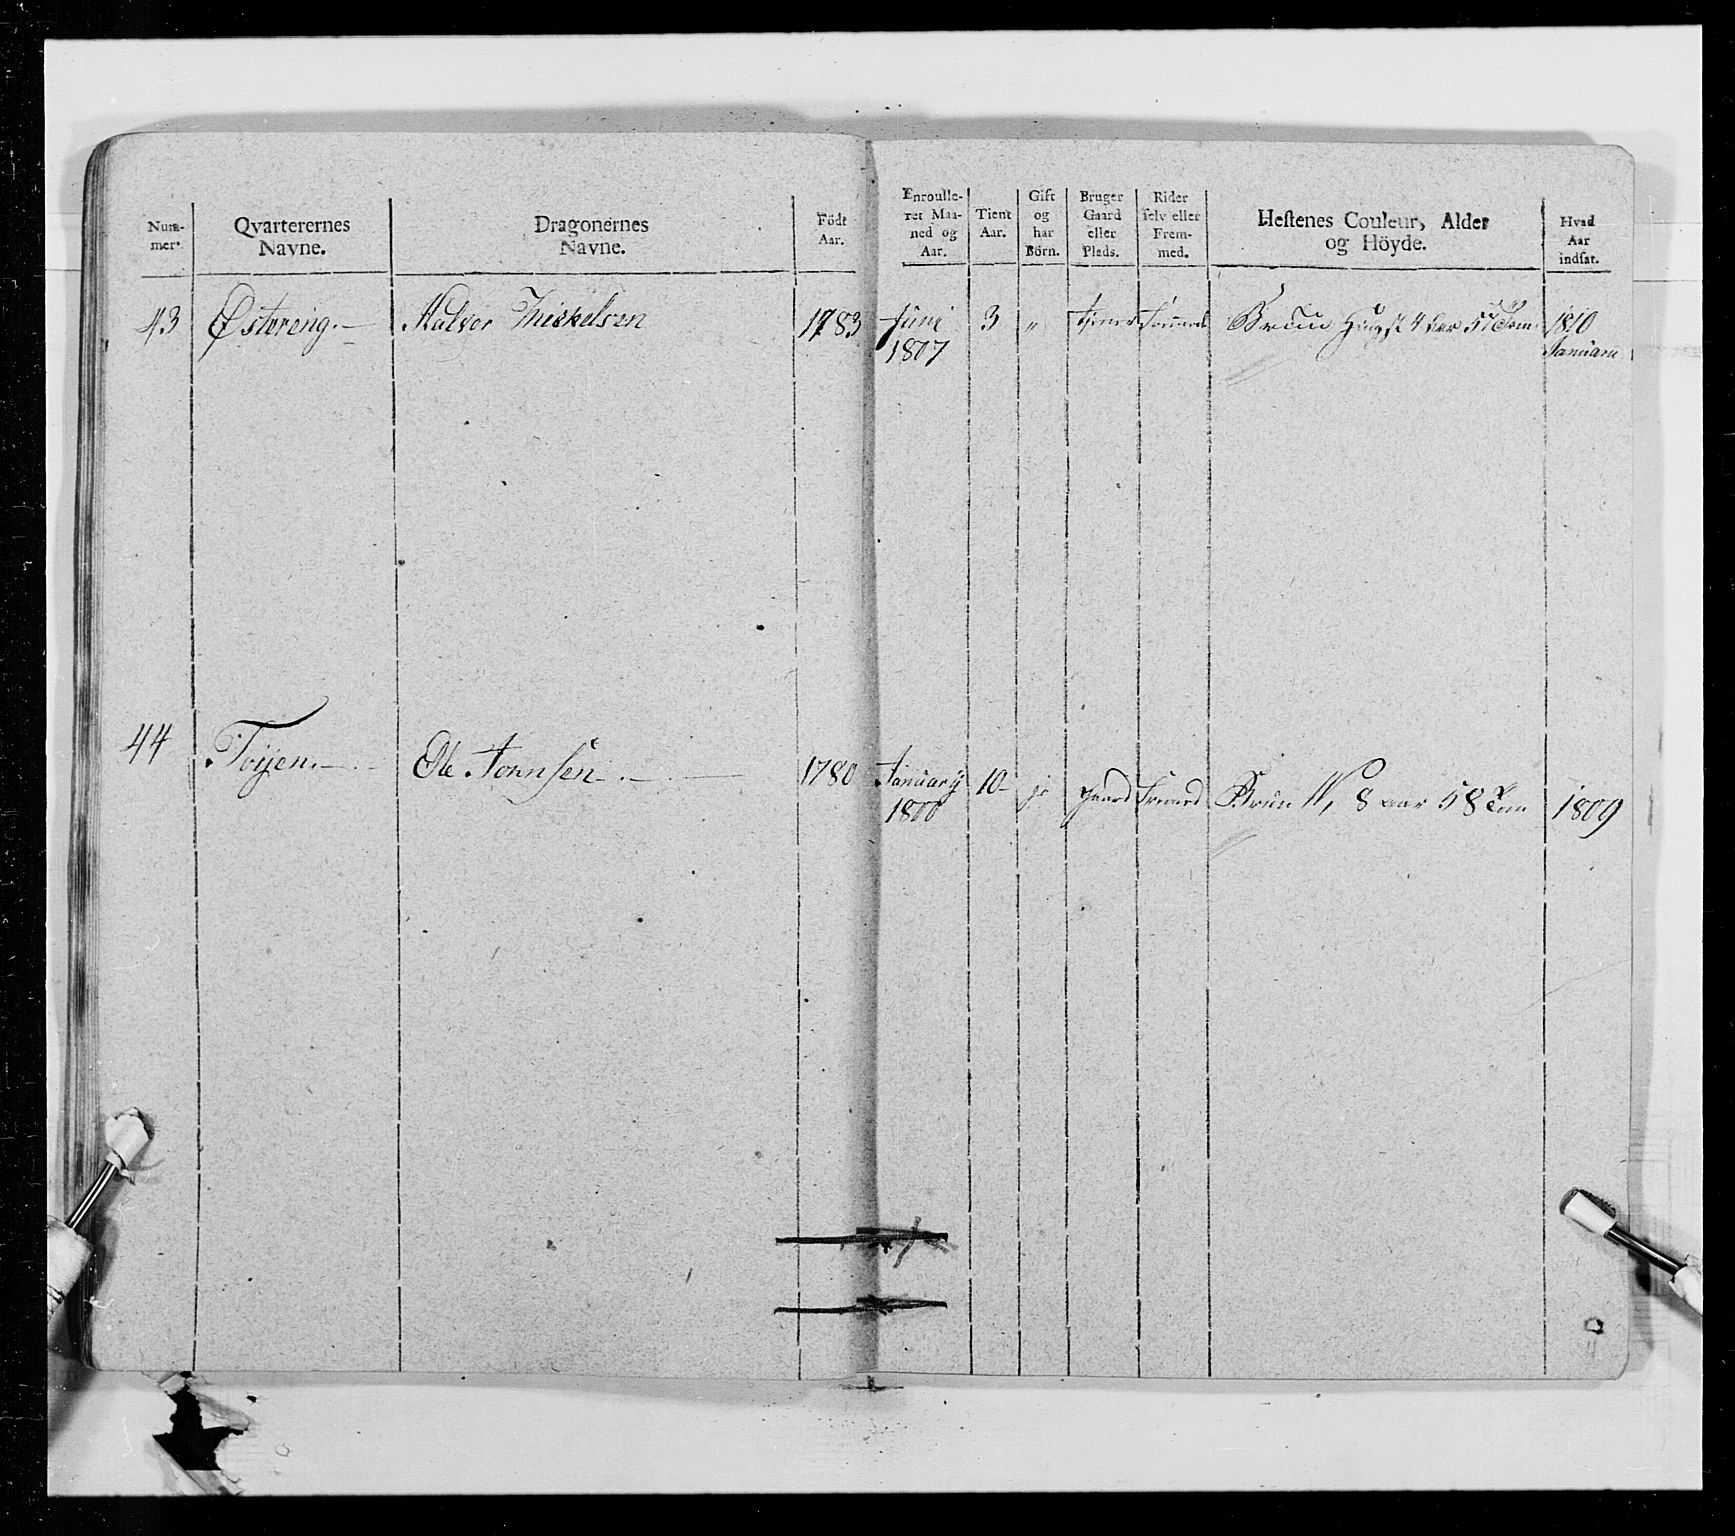 Num-
mer.
Qvarterernes
Navne.
Dragonernes
Navne.
Födt
Aar.
Enroulle-
ret Maa-
ned og
Aar.
Tient
Aar.
Gift
og
har
Börn.
Bruger
Gaard
eller
Plads.
Rider
selv eller
Frem-
med.
Hestenes Couleur, Alder
og Höyde.
Hvad
Aar
indsat.
43 Østereng. Halvor Mickelsen 1783 Juni 3 " tjener fremmed Bruun Hingst 4 Aar 57 Tom 1810
1807 Januari
44 Töyen. Ole Jonnsen 1780 January 10 ja gaard fremed Brun W, 8 aar 58 Tom 1809
1800